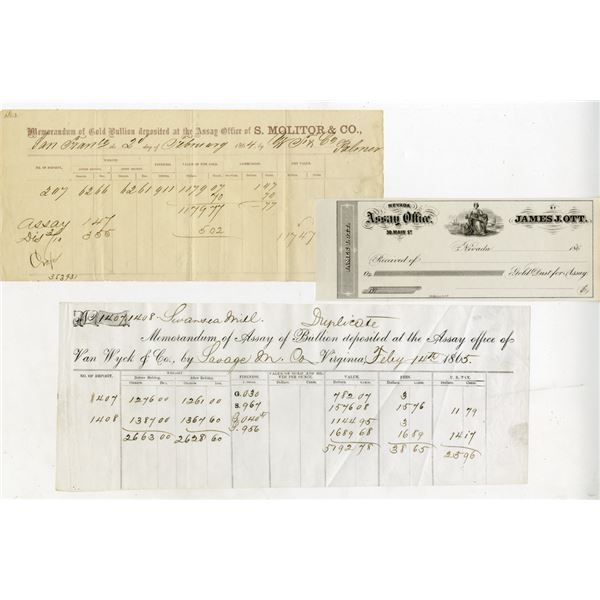 Memorandum of Gold Bullion deposited at the Assay Office of S. MOLITOR & CO.,
San Fran the 2d day of February 1864, by W. T. & Co
Palmer
WEIGHT
NO. OF DEPOSIT. FINENESS. VALUE OF THE GOLD. NET VALUE.
207 6266 6261 911 1179 07 1 47
70 70
1179 77 77
Assay 147
355 502 1174
353931
NEVADA
Assay Office,
30 MAIN ST.
JAMES J. OTT.
JAMES J. OTT.
Nevada 186
Received of
Oz Gold Dust for Assay.
1407 1408 Swansea Mill. Duplicate
Memorandum of Assay of Bullion deposited at the Assay office of
Van Wyck & Co., by Savage M. Co Virginia, Feby 14th 1865.
NO. OF DEPOSIT. WEIGHT FINENESS. VALUE OF GOLD AND SILVER PER OUNCE. VALUE. FEES. U. S. TAX.
Before Melting. After Melting.
Ounces. Dec. Ounces. Dec. Dollars. Cents. Dollars. Cents. Dollars. Cents. Dollars. Cents.
1407 1276 00 1261 00 G. 030 782 07 3
S. 967 1576 08 15 76 11 79
1408 1387 00 1367 60 G. 040½ 1144 95 3
S. 956 1689 68 16 89 14 17
2663 00 2628 60 5192 78 38 65 25 96